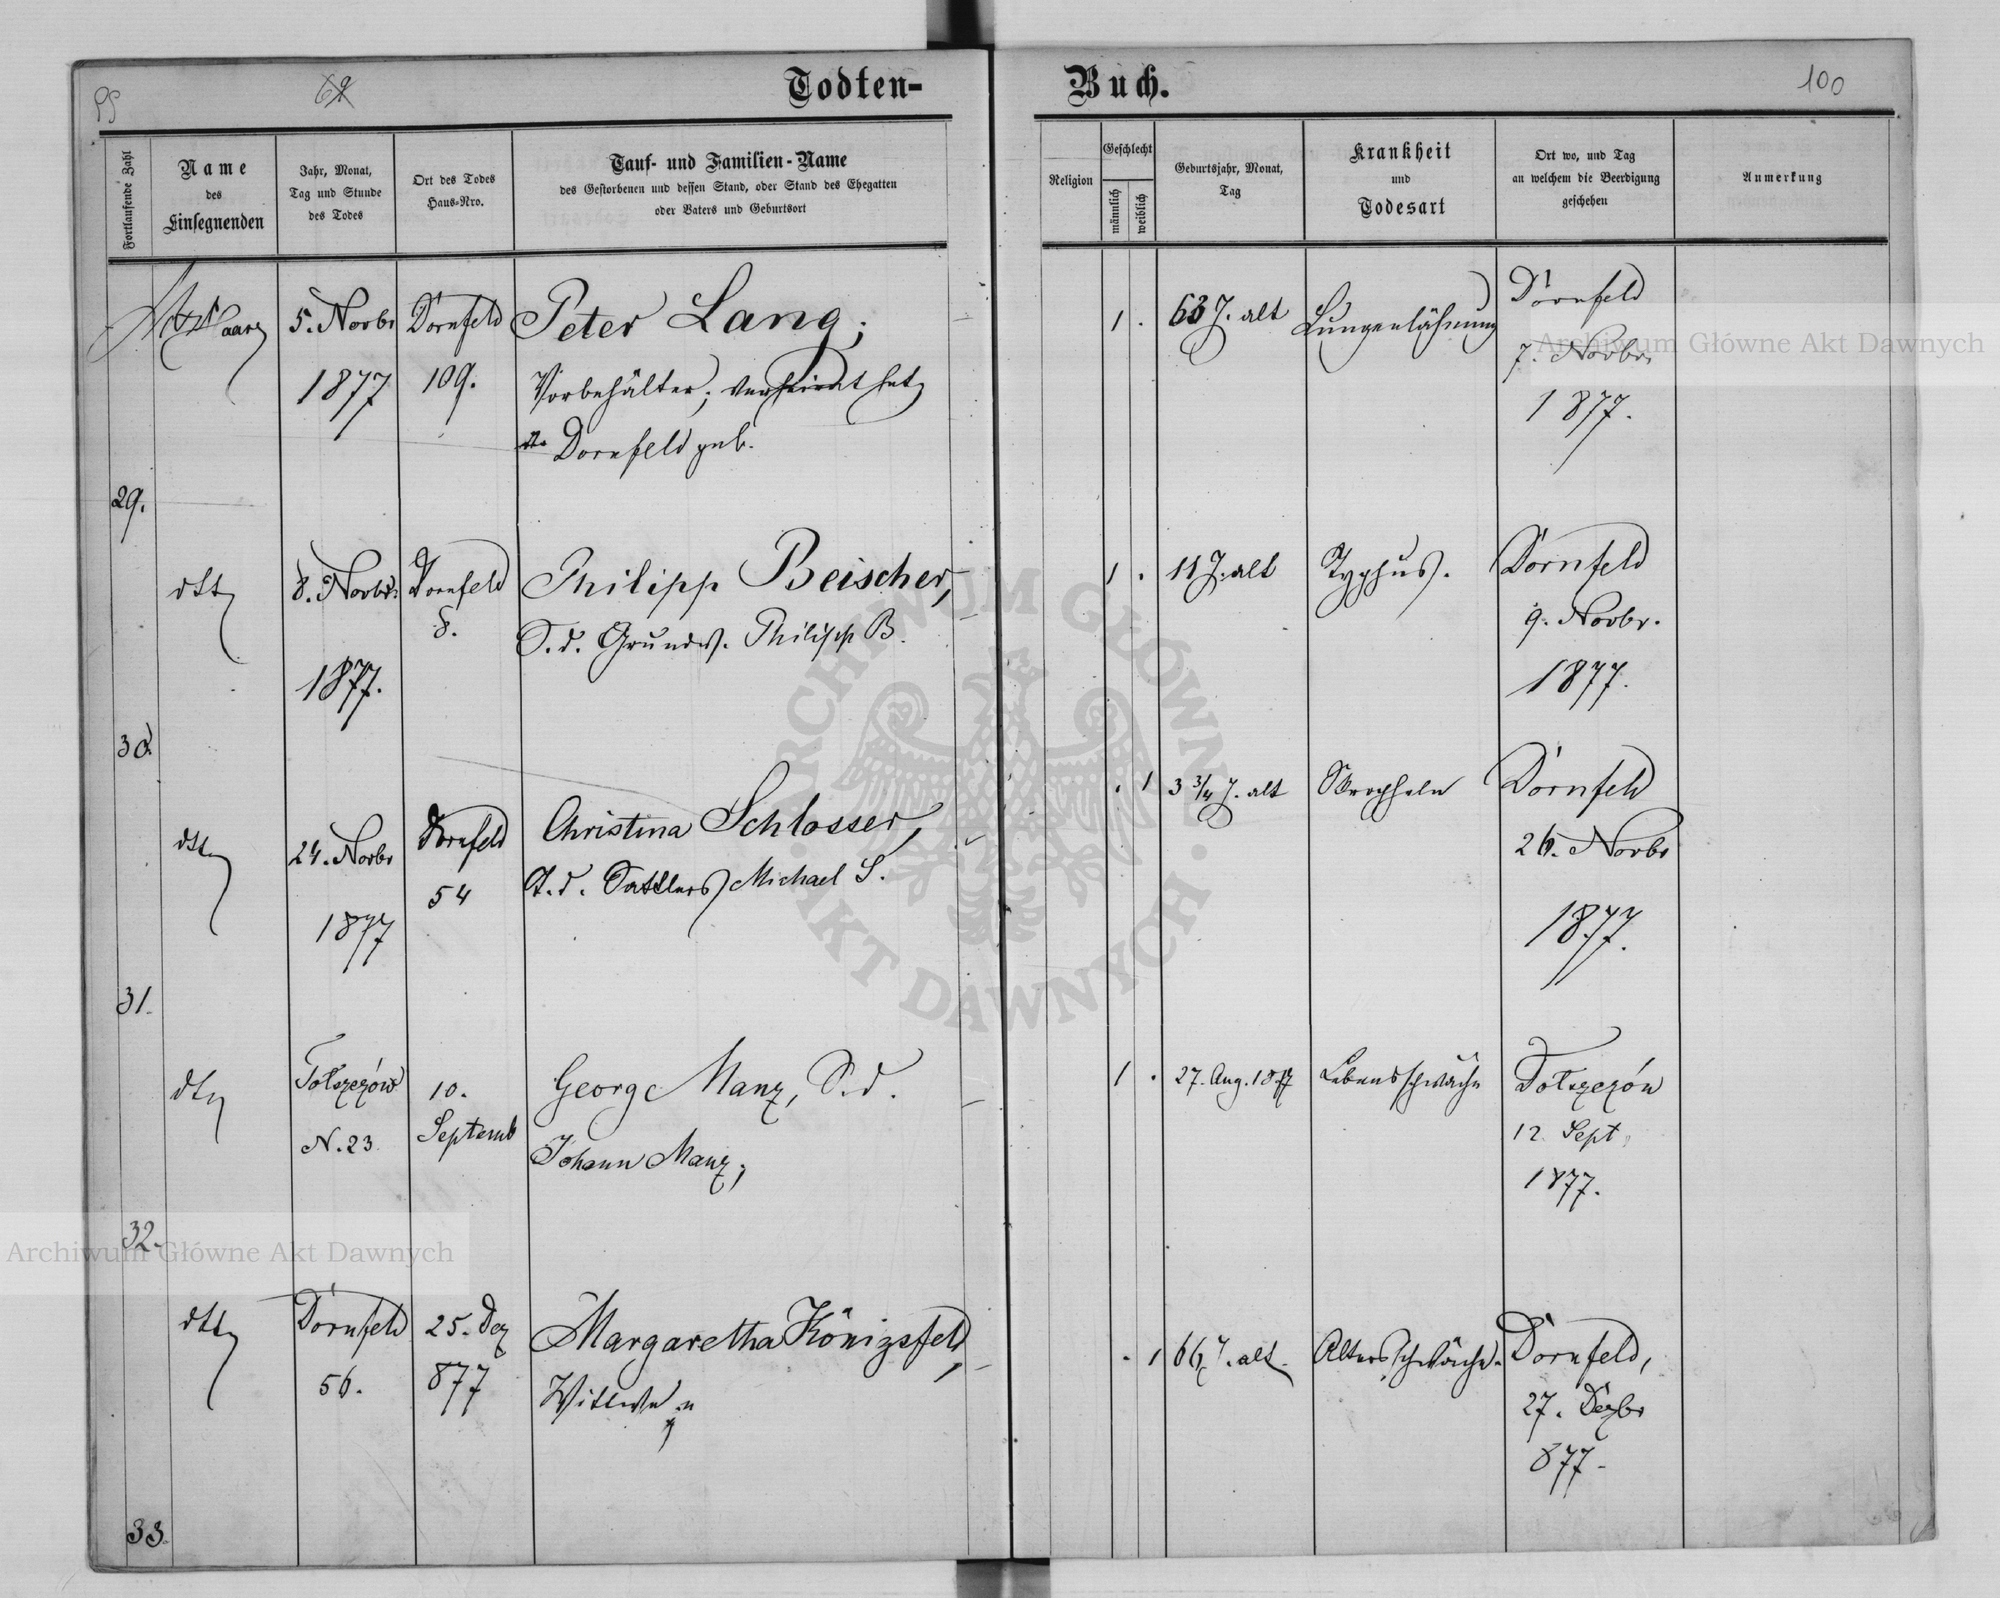 99
62
Todten-
Buch.
100
Fortlaufende Zahl
Name
des
Einsegnenden
Jahr, Monat,
Tag und Stunde
des Todes
Ort des Todes
Haus-Nro.
Tauf- und Familien-Name
des Gestorbenen und dessen Stand, oder Stand des Ehegatten
oder Vaters und Geburtsort
Religion
Geschlecht
männlich
weiblich
Geburtsjahr, Monat,
Tag
Krankheit
und
Todesart
Ort wo, und Tag
an welchem die Beerdigung
geschehen
Anmerkung
29.
5. Novbr
1877
Dornfeld
109.
Peter Lang;
Vorbehälter; verheirat hat
Dornfeld geb.
1 .
63 J. alt
Lungenlähmung
Dornfeld
7. Novbr.
1877.
30.
dtto
8. Novbr.
1877.
Dornfeld
8.
Philipp Beischer,
S. d. Grundw. Philipp B.
1 .
11 J. alt
Typhus.
Dornfeld
9. Novbr.
1877.
31.
dtto
24. Novbr
1877
Dornfeld
54
Christina Schlosser,
T. d. Sattlers Michael S.
. 1
3 3/4 J. alt
Skropheln
Dornfeld
26. Novbr
1877.
32.
dto
Tołszczów
N. 23.
10.
Septemb
George Manz, S. d.
Johann Manz,
1 .
27. Aug. 1877
Lebensschwäche
Tołszczów
12. Sept.
1877.
33.
dtto
Dornfeld
56.
25. Dez
877
Margaretha Königsfeld,
Wittwe
. 1
66 J. alt.
Altersschwäche.
Dornfeld,
27. Dezbr
877.
Archiwum Główne Akt Dawnych
Archiwum Główne Akt Dawnych
ARCHIWUM GŁÓWNE AKT DAWNYCH